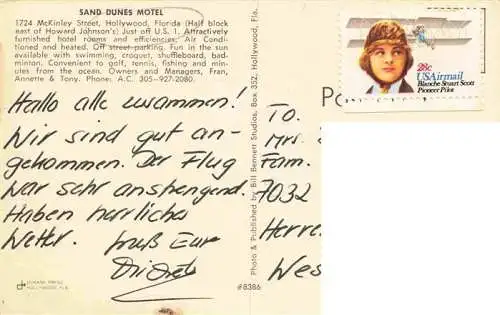 SAND DUNES MOTEL
1724 McKinley Street, Hollywood, Florida (Half block
east of Howard Johnson's) Just off U.S. 1. Attractively
furnished hotel rooms and efficiencies. Air Condi-
tioned and heated. Off street parking. Fun in the sun
available with swimming, croquet, shuffleboard, bad-
minton. Convenient to golf, tennis, fishing and min-
utes from the ocean. Owners and Managers, Fran,
Annette & Tony. Phone: A.C. 305-927-2080.
Hallo alle zusammen!
Wir sind gut an-
gekommen. Der Flug
war sehr anstrengend.
Haben herrliches
Wetter. Gruß Eure
DEXTER PRESS
HOLLYWOOD, FLA.
#8386
Photo & Published by Bill Bennett Studios, Box 352, Hollywood, Fla.
28c
USAirmail
Blanche Stuart Scott
Pioneer Pilot
Po
To.
Mrs.
Fam.
7032
Herre
Wes